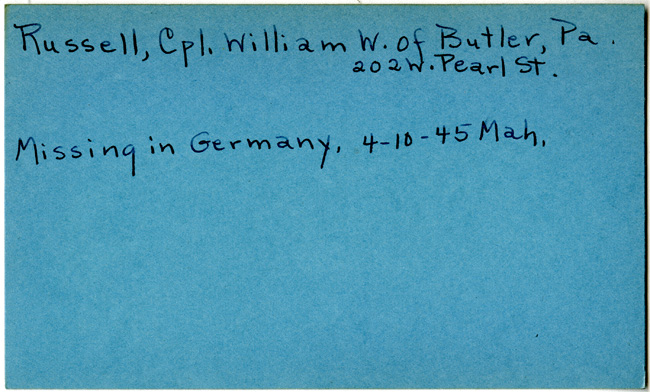 Russell, Cpl. William W. of Butler, Pa.
202 W. Pearl St.
Missing in Germany, 4-10-45 Mah,